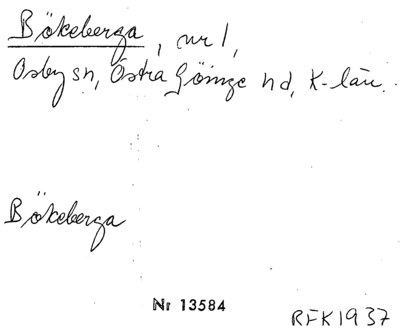 Bökeberga, nr 1,
Osby sn, Östra Göinge hd, K-län.
Bökeberga
Nr 13584
RFK 1937